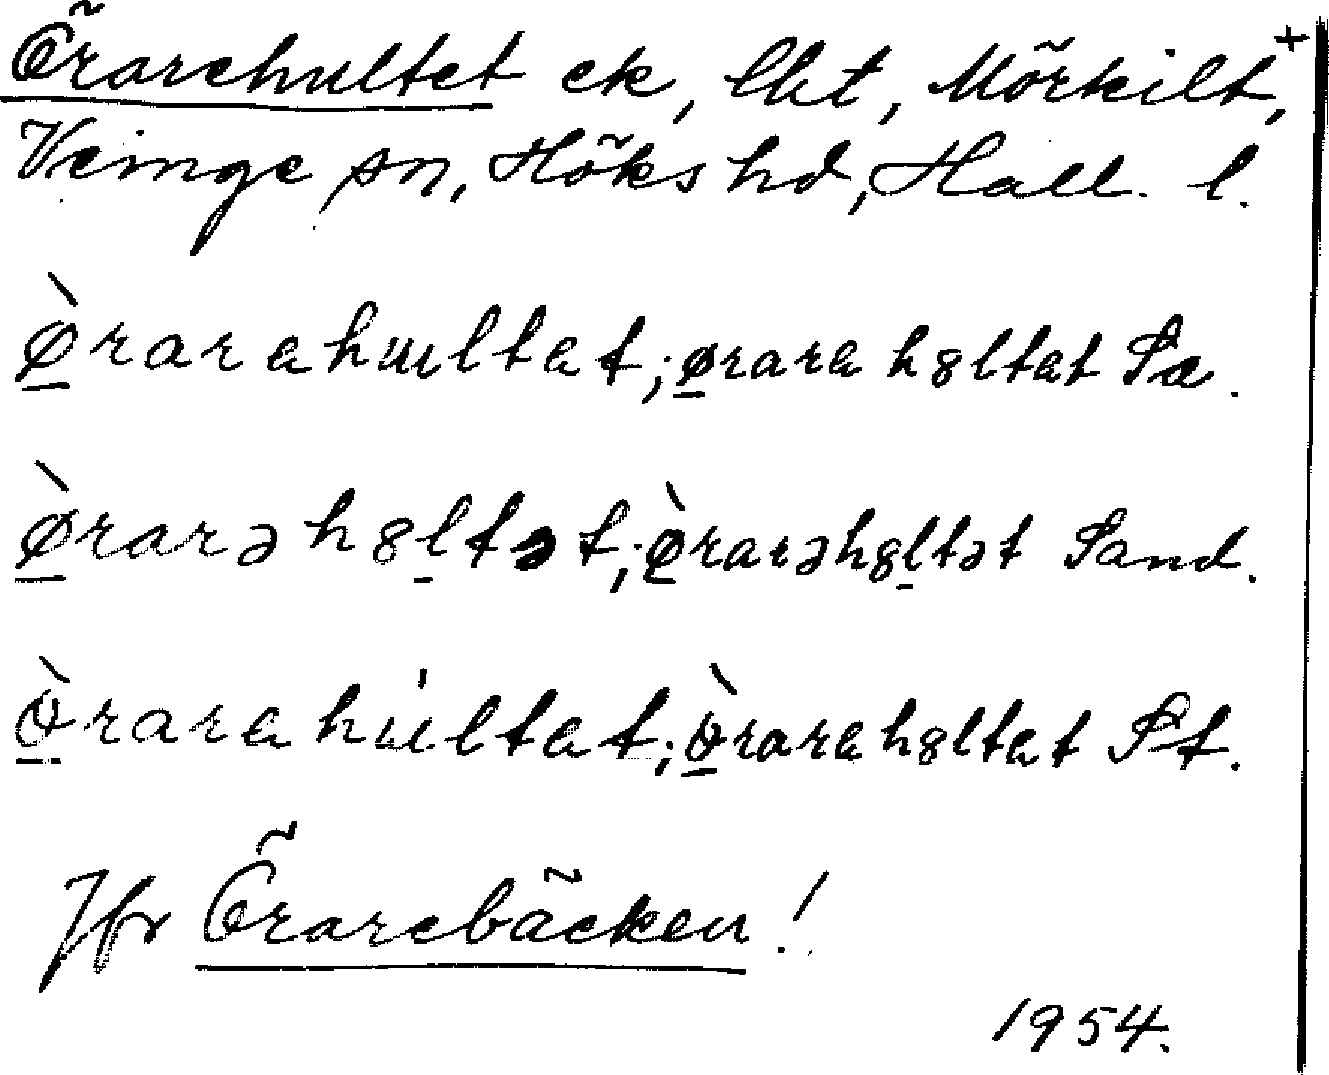 Örarehultet ek, lht, Mörkilt,+
Veinge sn, Höks hd, Hall. l.
ø̱̀rarahultat; ø̱rarahȣltat Sa.
ø̱̀rarəhȣl̠tət; ø̱̀rarəhȣl̠tət Sand.
ò̱rarahultat; ò̱rarahȣltat St.
Jfr Örarebäcken!
1954.